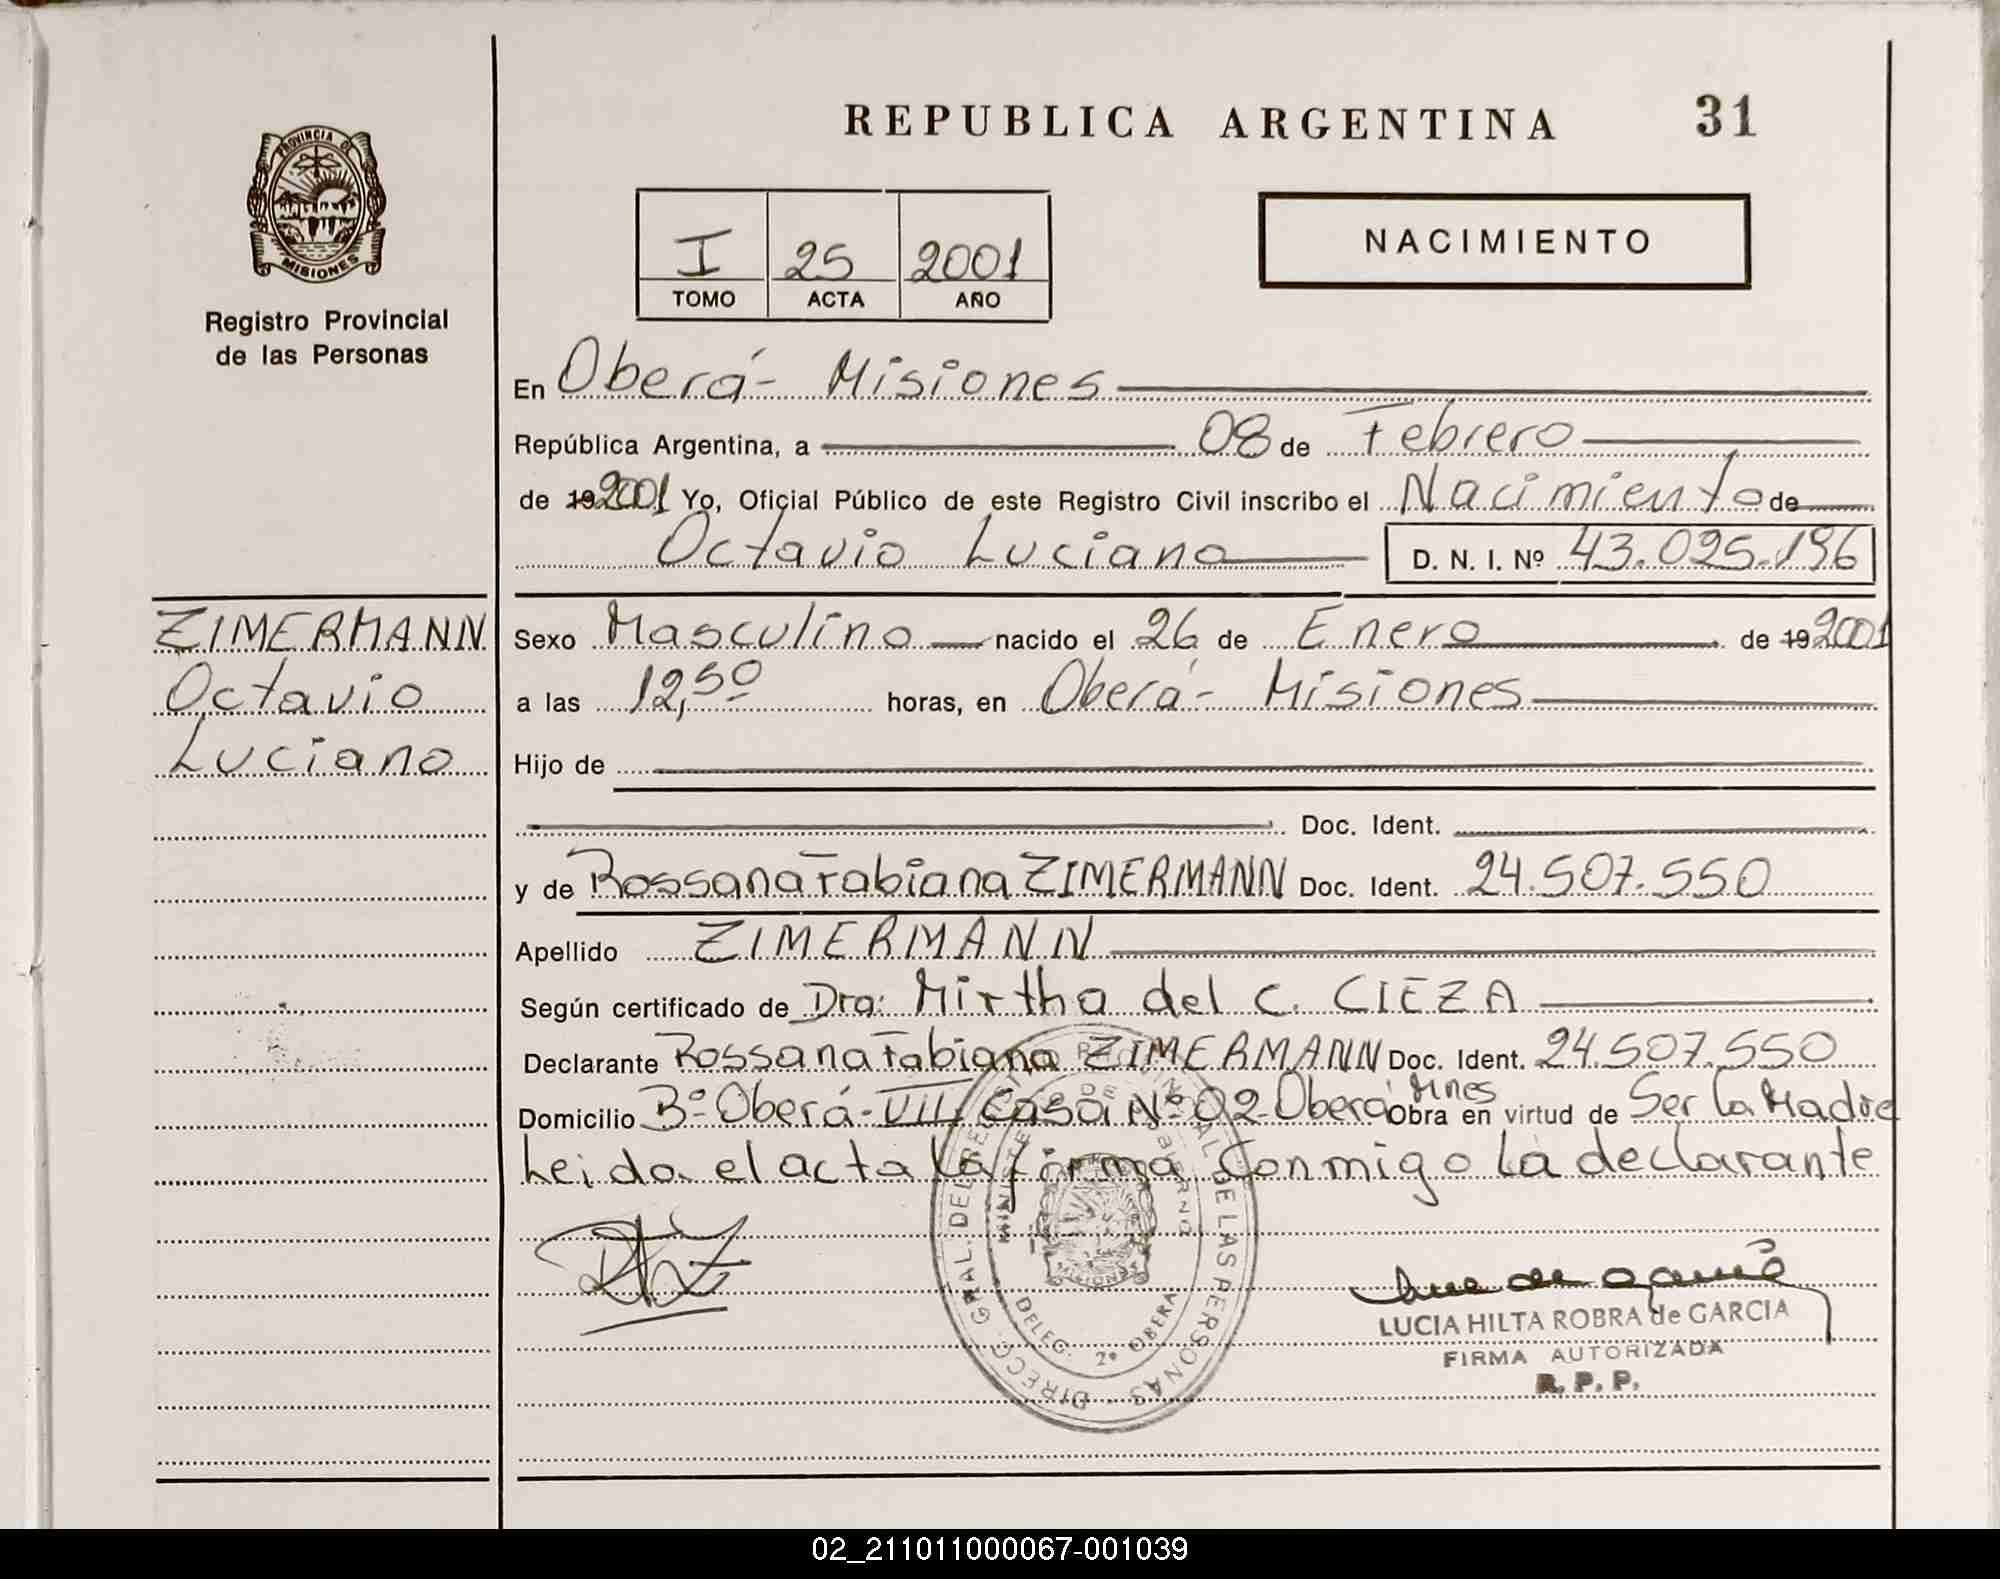 REPUBLICA ARGENTINA 31
PROVINCIA DE
MISIONES
Registro Provincial
de las Personas
I 25 2001
TOMO ACTA AÑO
NACIMIENTO
En Oberá- Misiones
República Argentina, a 08 de Febrero
de 19 2001 Yo, Oficial Público de este Registro Civil inscribo el Nacimiento de
Octavio Luciano D. N. I. Nº 43.025.196
ZIMERMANN
Octavio
Luciano
Sexo Masculino nacido el 26 de Enero de 19 2001
a las 12,50 horas, en Oberá- Misiones
Hijo de
Doc. Ident.
y de Rossana Fabiana ZIMERMANN Doc. Ident. 24.507.550
Apellido ZIMERMANN
Según certificado de Dra: Mirtha del C. CIEZA
Declarante Rossana Fabiana ZIMERMANN Doc. Ident. 24.507.550
Domicilio Bº Oberá-VII, Casa Nº 02-Oberá Mnes Obra en virtud de Ser la Madre
Leida el acta la firma Conmigo la declarante
DIRECC. GRAL. DEL REG. PROVINCIAL DE LAS PERSONAS
MINISTERIO DE GOBIERNO
MISIONES
DELEG. 2º OBERA
LUCIA HILTA ROBRA de GARCIA
FIRMA AUTORIZADA
R. P. P.
02_211011000067-001039